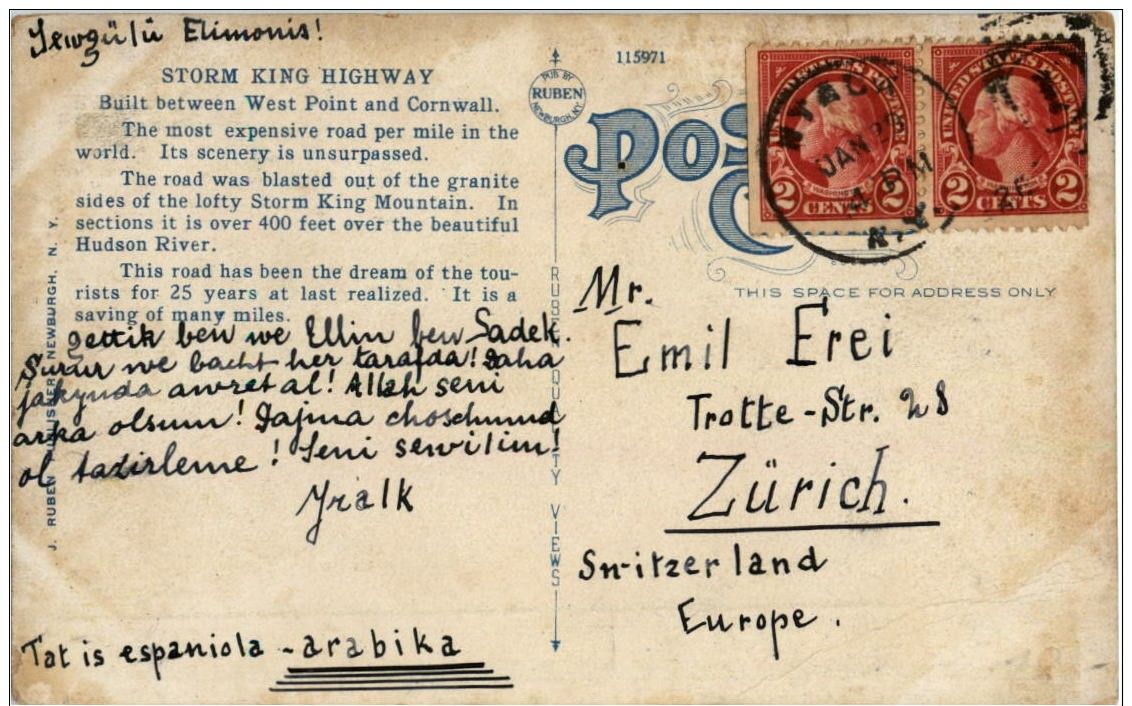 Sewgülü Elimonis!
STORM KING HIGHWAY
Built between West Point and Cornwall.
The most expensive road per mile in the
world. Its scenery is unsurpassed.
The road was blasted out of the granite
sides of the lofty Storm King Mountain. In
sections it is over 400 feet over the beautiful
Hudson River.
This road has been the dream of the tou-
rists for 25 years at last realized. It is a
saving of many miles.
gettik ben we Ellin ben Sadek.
Surur we bacht her tarafda! Daha
jakynda awret al! Allah seni
arka olsun! Dajma choschnud
ol taxirleme! Seni sewilim!
Yralk
Tat is espaniola - arabika
J. RUBEN PUBLISHER, NEWBURGH, N. Y.
PUB BY
RUBEN
NEWBURGH, N.Y.
RUBEN QUALITY VIEWS
115971
POST
UNITED STATES POSTAGE
WASHINGTON
2 CENTS 2
UNITED STATES POSTAGE
WASHINGTON
2 CENTS 2
NYACK
JAN
4 PM
N.Y.
THIS SPACE FOR ADDRESS ONLY
Mr.
Emil Erei
Trotte-Str. 28
Zürich.
Switzerland
Europe.